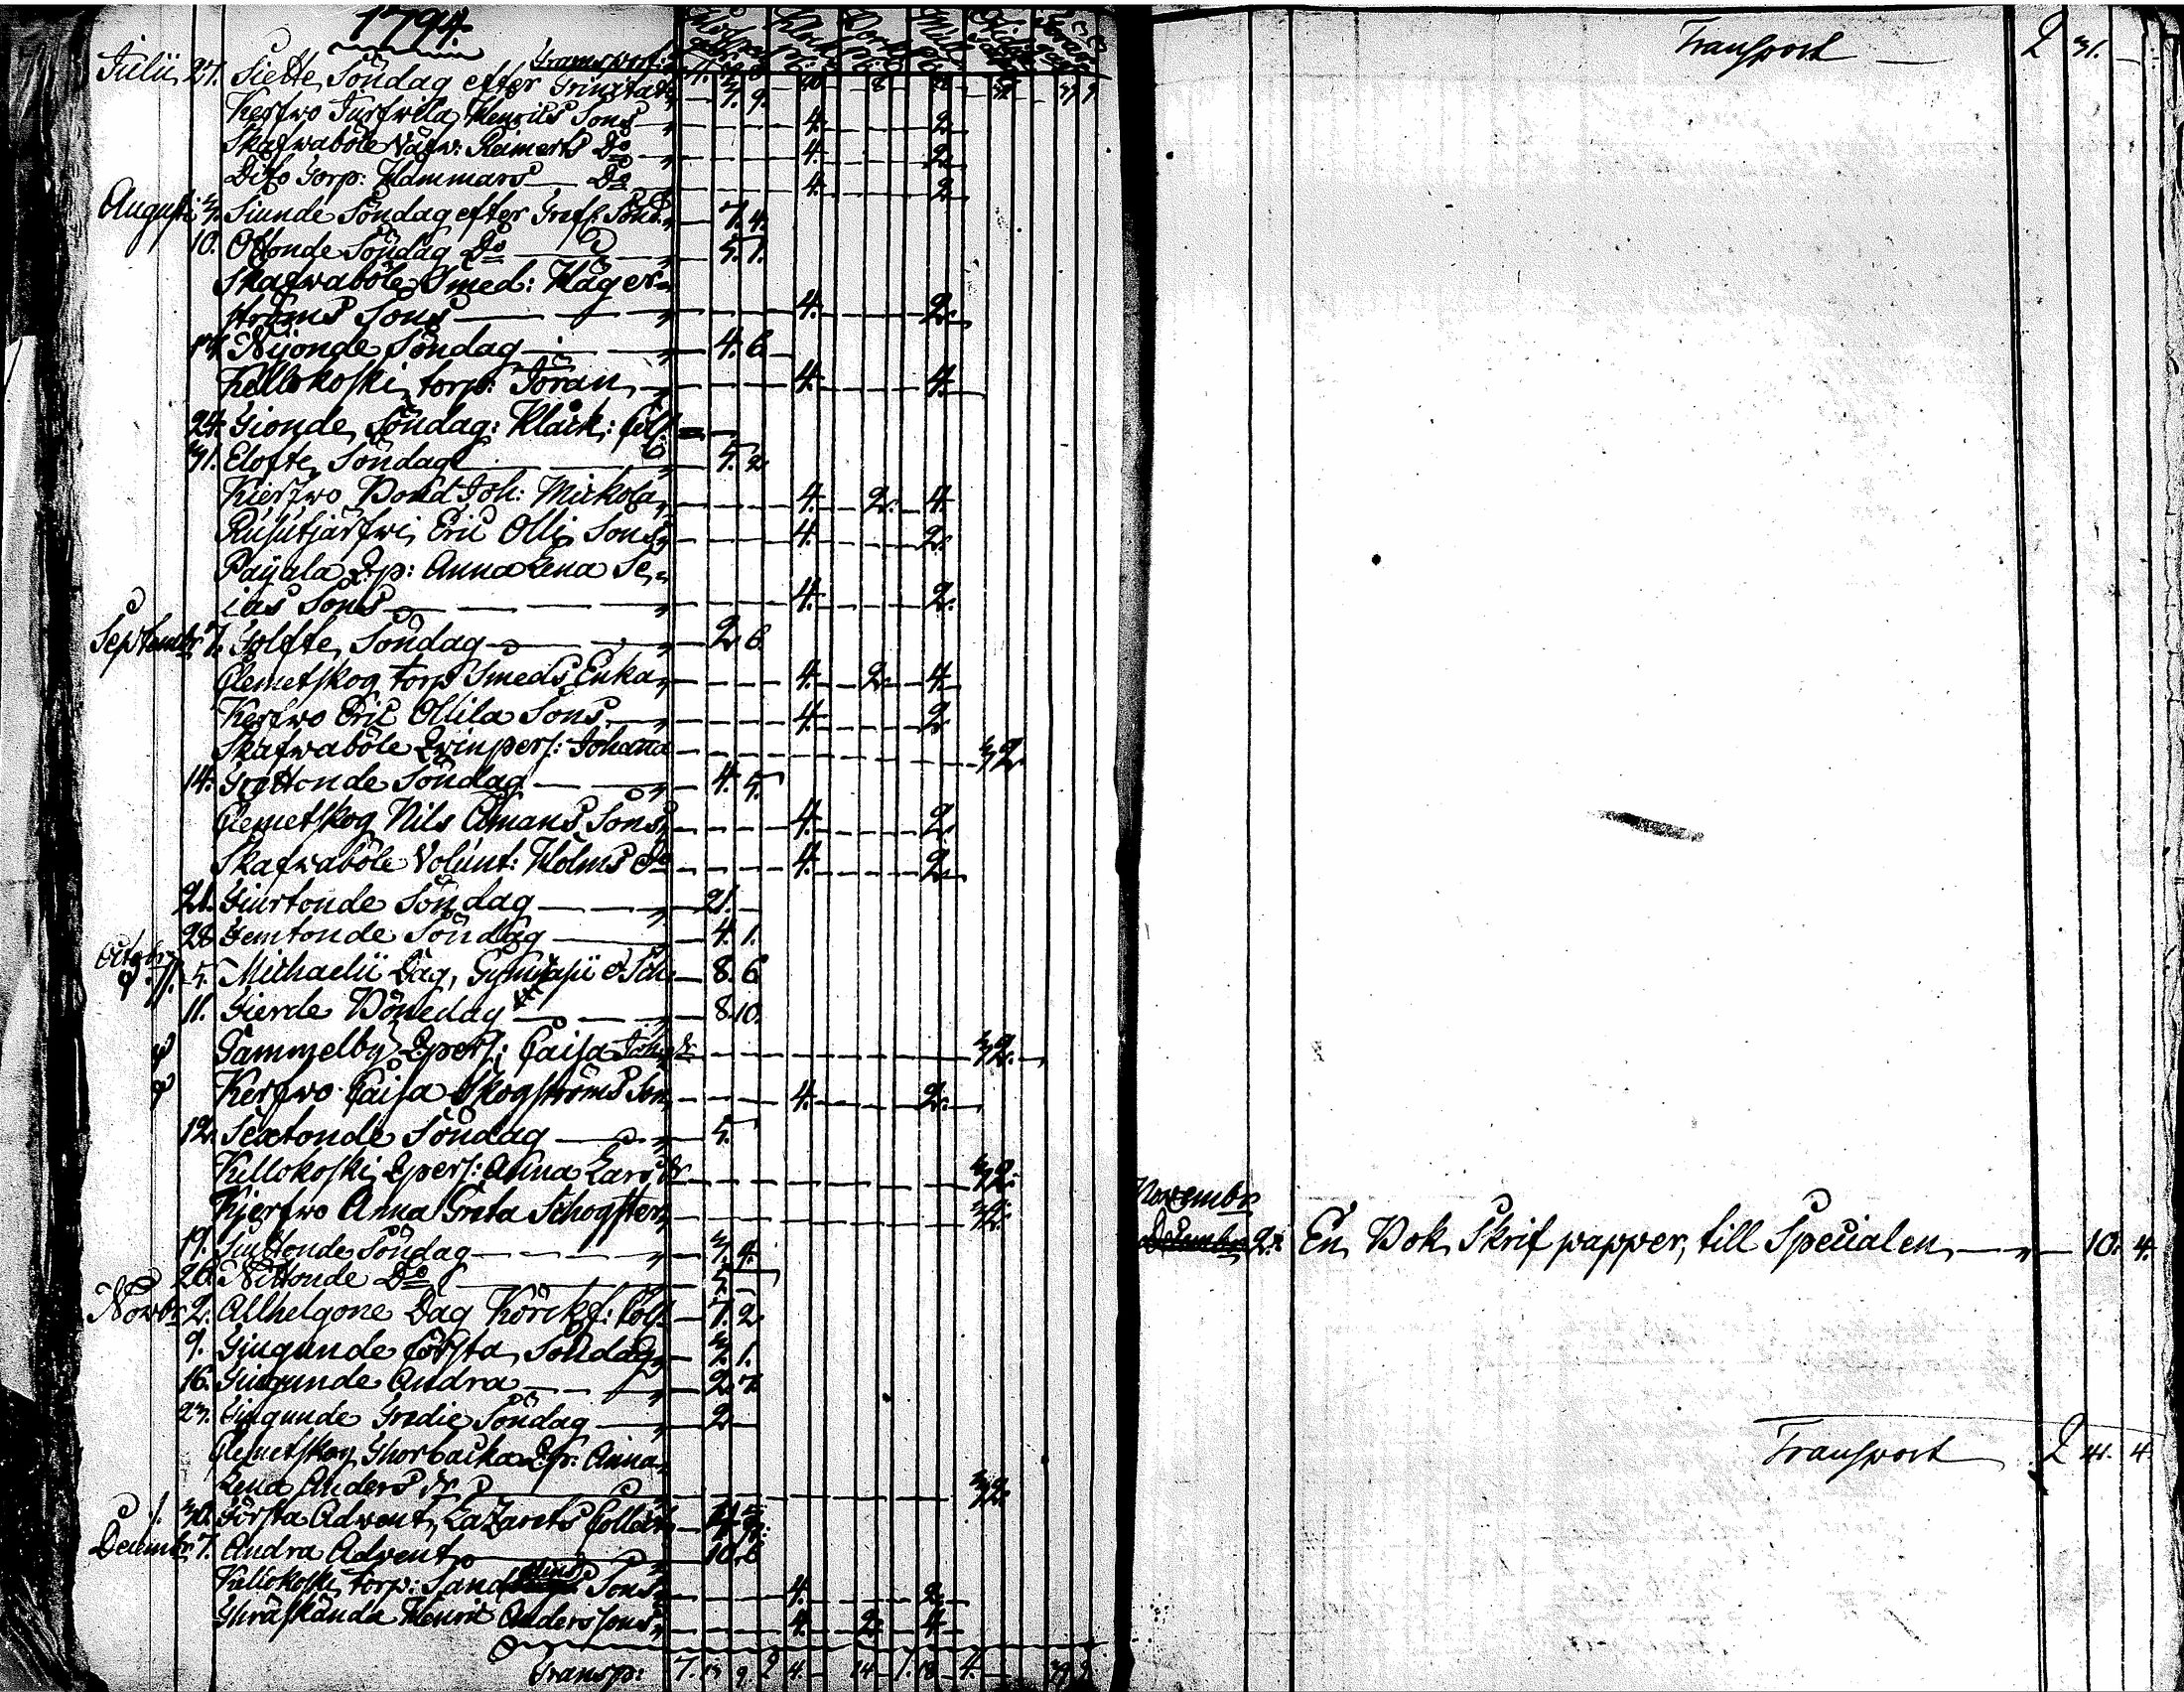 1794
Transport:
Julii 27. Siette Söndag efter Trinitatis 3. 9.
Kerfwo Henrics Sons 4. 2.
Skafwaböle Reimers Do 4. 2.
Dito Torp: Hammars Do 4. 2.
Augusti 3. Siunde Söndag efter 7. 4.
10. Ottonde Söndag Do 5. 1.
Skafwaböle Smed: Häger-
ströms Sons 4. 2.
17. Nijonde Söndag 4. 6.
Kellokoski torp: Jöran 4. 4.
24. Tionde Söndag: Klåck: Coll
31. Elofte Söndag 5. 2.
Kierfwo Bond Joh: Mickola 4. 2. 4.
Rusutjärfwi Eric Olli Sons 4. 2.
Payala Qp: Anna Lena Se-
ias Sons 4. 2.
Septembr 7. Tolfte Söndag 2. 6.
Clemetskog torp Smeds Enka 4. 2. 4.
Kerfwo Eric Ollila Sons 4. 2.
Skafwaböle Qwinpers: Johanna 32.
14. Trettonde Söndag 4. 5.
Clemetskog Nils Åmans Sons 4. 2.
Skafwaböle Volunt: Holms Do 4. 2.
21. Fiurtonde Söndag 21.
28. Femtonde Söndag 4. 1.
Octobr 5. Michaelii Dag, Gymnasii o Sch 8. 6.
11. Fierde Bönedag 8. 10.
Gammelby Qpers: Caisa Joh dr 32.
Kerfwo Caisa Skogströms Son 4. 2.
12. Sextonde Söndag 5.
Kellokoski Qpers: Anna Lars dr 32.
Kjerfwo Anna Greta Schogster 32.
19. Siuttonde Söndag 3. 4.
26. Nittonde Do 5.
Novbr 2. Allhelgone Dag Körckf: Coll 7. 2.
9. Tiugunde första Söndag 3. 1.
16. Tiugunde Andra 2. 7.
23. Tiugunde Tredie Söndag 2.
Clemetskog Thorbacka Qp: Anna
Lena Anders dr 32.
30. Första Advent, Lazarets Collect
Decembr 7. Andra Advent 10. 6.
Kellokoski torp: Sand Sons 4. 2.
Thräskända Henric Anderssons 4. 2. 4.
Transp: 7. 13 9. 2 4. 14 1. 18 4. 39 9
Transport 2 31.
Novembr
2. En Bok Skrif papper, till Specialen 10. 4.
Transport 2 41. 4